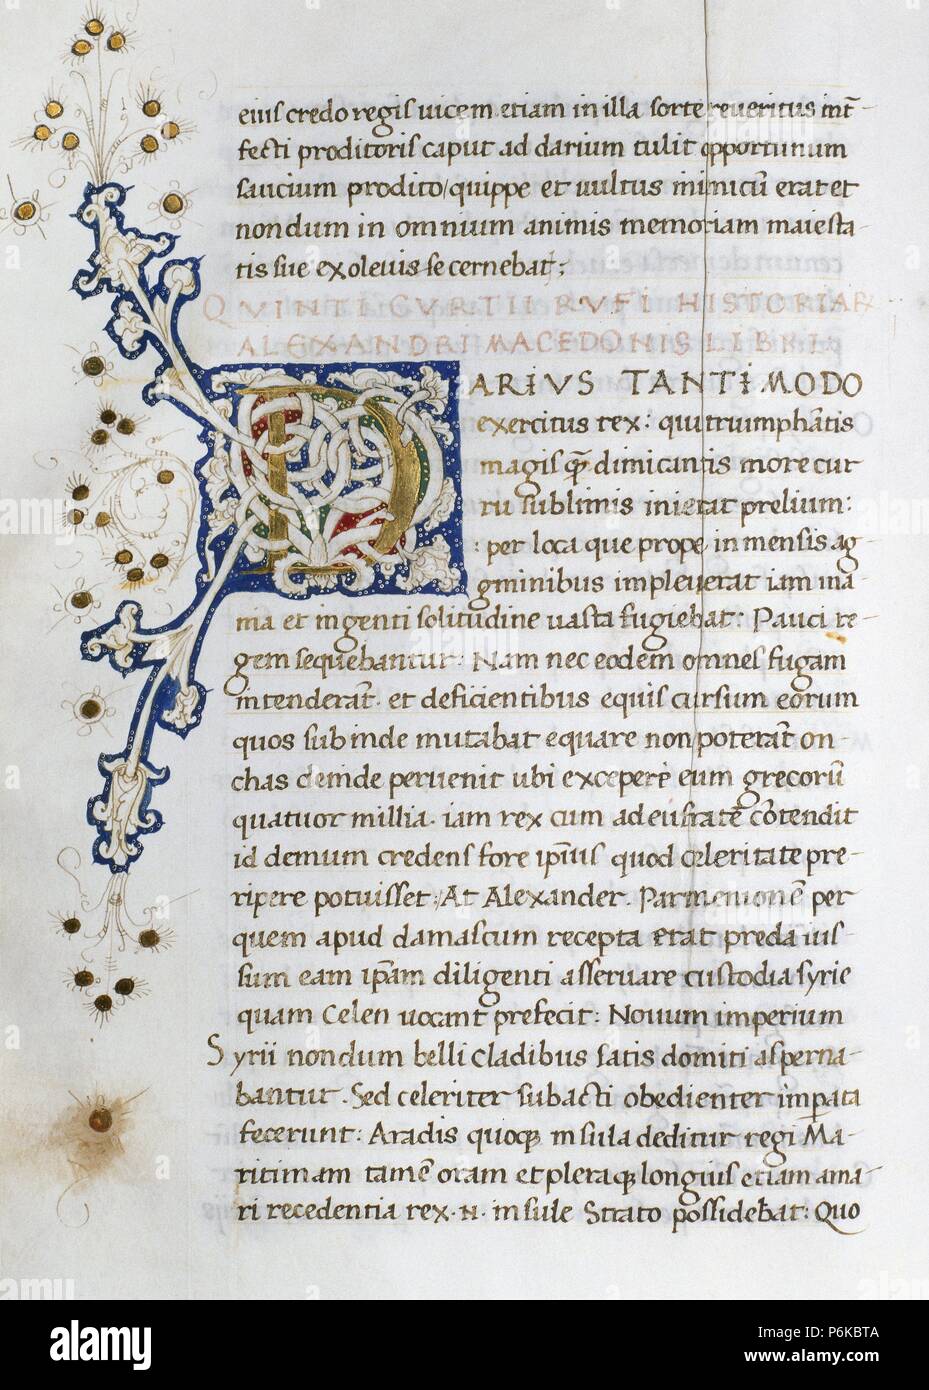 eius credo regis uicem etiam in illa sorte reueritus int̄-
fecti proditoris caput ad darium tulit opportunum
saucium prodito/ quippe et uultus inimicū erat et
nondum in omnium animis memoriam maiesta-
tis sue exoleuisse cernebat;
QVINTI CVRTII RVFI HISTORIAR
ALEXANDRI MACEDONIS LIBRI
DARIVS TANTI MODO
exercitus rex: qui triumphātis
magis quā dimicantis more cur
ru sublimis inierat prelium:
: per loca que prope inmensis ag
gminibus impleuerat iam ina-
nia et ingenti solitudine uasta fugiebat: Pauci re-
gem sequebantur: Nam nec eodem omnes fugam
intenderāt. et deficientibus equis cursum eorum
quos subinde mutabat equare non poterāt on-
chas deinde peruenit ubi excepere eum grecorū
quatuor millia. iam rex cum ad eufratē cōtendit
id demum credens fore ip̄ius quod celeritate pre-
ripere potuisset: At Alexander. Parmenionē per
quem apud damascum recepta erat preda ius-
sum eam ip̄am diligenti asseruare custodia syrie
quam Celen uocant prefecit: Nouum imperium
Syrii nondum belli cladibus satis domiti asperna-
bantur. Sed celeriter subacti obedienter imp̄ata
fecerunt: Aradis quoqꝫ insula deditur regi Ma-
ritimam tamē oram et pleraqꝫ longius etiam a ma-
ri recedentia rex. N. insule Strato possidebat: Quo
alamy
Image ID: P6KBTA
www.alamy.com